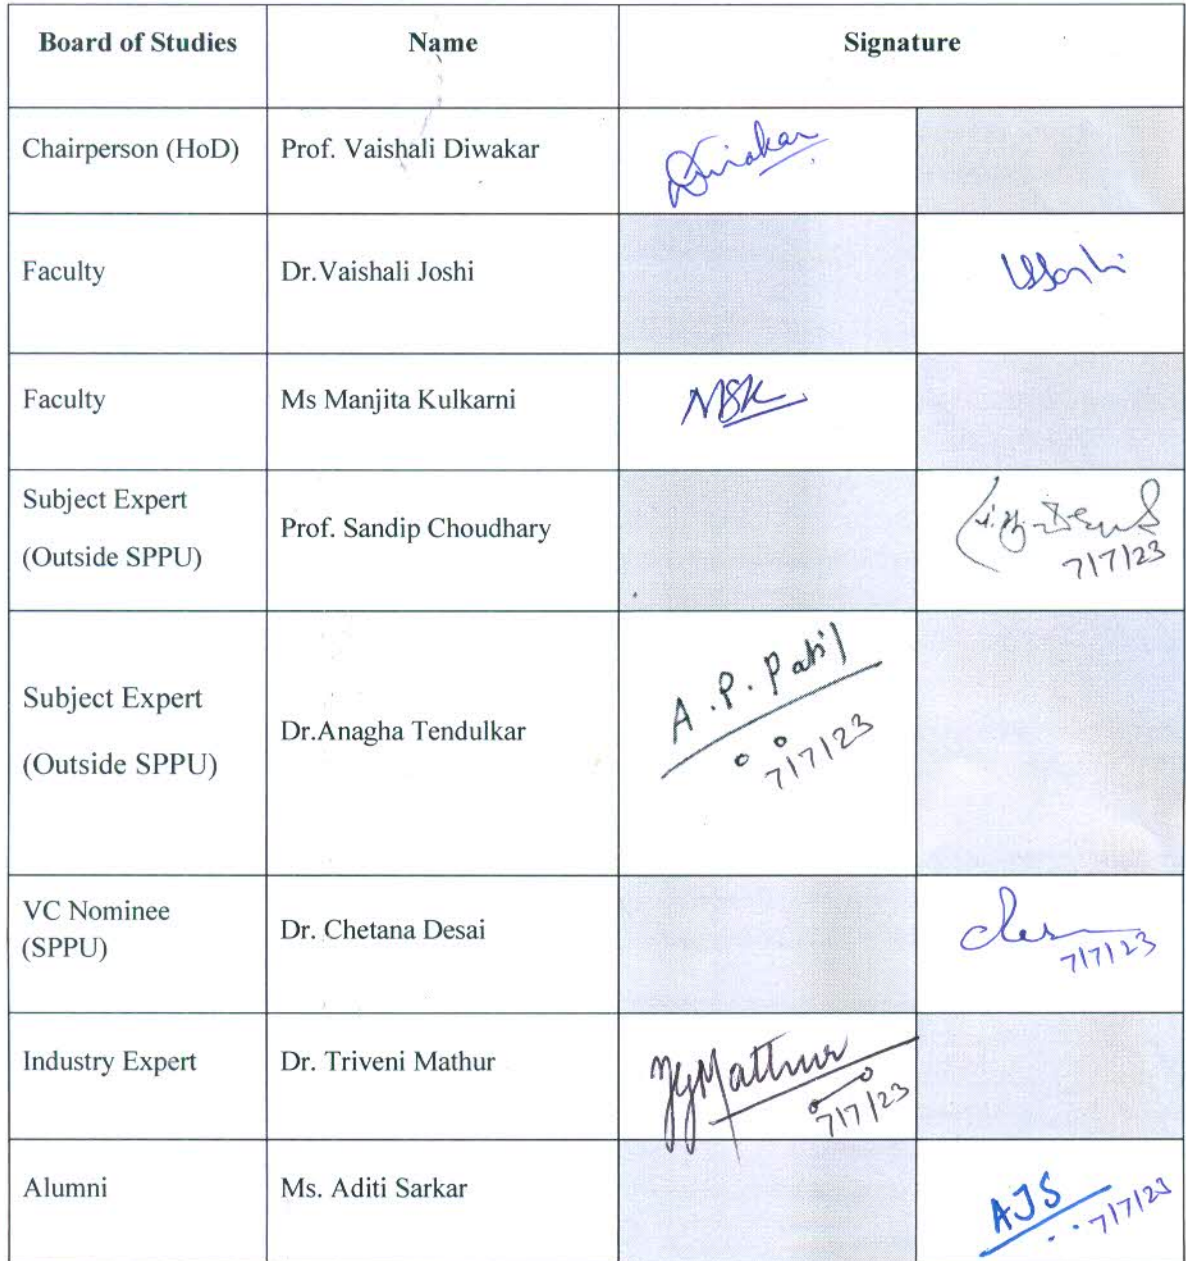 Board of Studies Name Signature
Chairperson (HoD) Prof. Vaishali Diwakar Diwakar
Faculty Dr.Vaishali Joshi
Faculty Ms Manjita Kulkarni MSK
Subject Expert
(Outside SPPU)
Prof. Sandip Choudhary
7/7/23
Subject Expert
(Outside SPPU)
Dr.Anagha Tendulkar
A.P.Patil
7/7/23
VC Nominee
(SPPU)
Dr. Chetana Desai
7/7/23
Industry Expert Dr. Triveni Mathur
7/7/23
Alumni Ms. Aditi Sarkar AJS
7/7/23